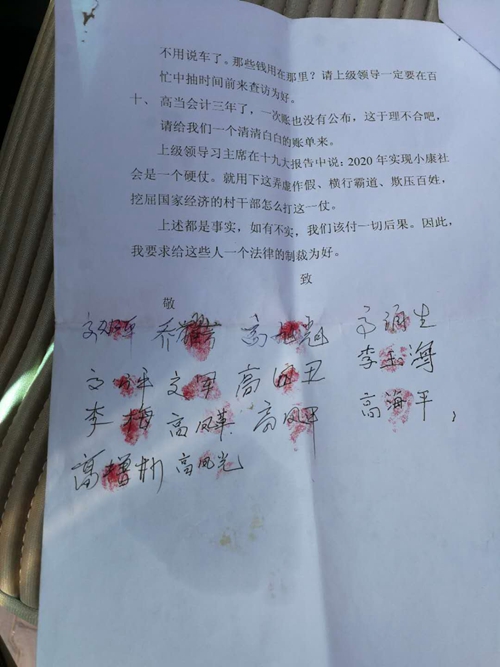 不用说车了。那些钱用在那里？请上级领导一定要在百
忙中抽时间前来查访为好。
十、高当会计三年了，一次账也没有公布，这于理不合吧，
请给我们一个清清白白的账单来。
上级领导习主席在十九大报告中说：2020年实现小康社
会是一个硬仗。就用下这弄虚作假、横行霸道、欺压百姓，
挖屈国家经济的村干部怎么打这一仗。
上述都是事实，如有不实，我们该付一切后果。因此，
我要求给这些人一个法律的制裁为好。
致
敬
高 冠
文 平 文军 高 丑 李 海
李梅 高凤英 高凤甲 高海平
高增彬 高凤光